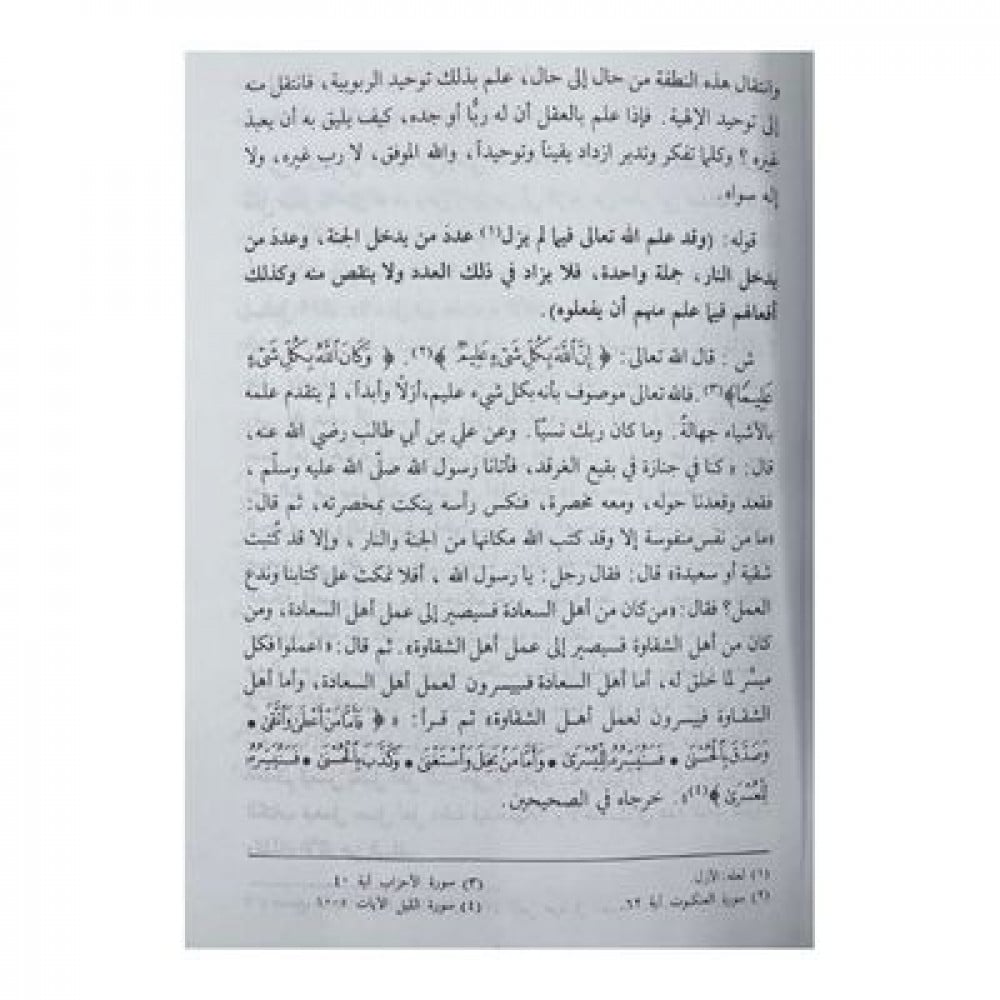 وانتقال هذه النطفة من حال إلى حال، علم بذلك توحيد الربوبية، فانتقل منه
إلى توحيد الإلهية. فإذا علم بالعقل أن له ربًّا أوجده، كيف يليق به أن يعبد
غيره؟ وكلما تفكر وتدبر ازداد يقيناً وتوحيداً، والله الموفق، لا رب غيره، ولا
إله سواه.
قوله: (وقد علم الله تعالى فيما لم يزل(١) عدد من يدخل الجنة، وعدد من
يدخل النار، جملة واحدة، فلا يزاد في ذلك العدد ولا ينقص منه وكذلك
أفعالهم فيما علم منهم أن يفعلوه).
ش: قال الله تعالى: ﴿ إِنَّ ٱللَّهَ بِكُلِّ شَىْءٍ عَلِيمٌ ﴾(٢). ﴿ وَكَانَ ٱللَّهُ بِكُلِّ شَىْءٍ
عَلِيمًا﴾(٣). فالله تعالى موصوف بأنه بكل شيء عليم، أزلاً وأبداً، لم يتقدم علمه
بالأشياء جهالةٌ. وما كان ربك نسيًّا. وعن علي بن أبي طالب رضي الله عنه،
قال: «كنا في جنازة في بقيع الغرقد، فأتانا رسول الله صلّى الله عليه وسلّم،
فقعد وقعدنا حوله، ومعه مخصرة، فنكس رأسه ينكت بمخصرته، ثم قال:
«ما من نفس منفوسة إلا وقد كتب الله مكانها من الجنة والنار، وإلا قد كُتبت
شقية أو سعيدة» قال: فقال رجل: يا رسول الله، أفلا نمكث على كتابنا وندع
العمل؟ فقال: «من كان من أهل السعادة فسيصير إلى عمل أهل السعادة، ومن
كان من أهل الشقاوة فسيصير إلى عمل أهل الشقاوة». ثم قال: «اعملوا فكل
ميسَّر لما خلق له، أما أهل السعادة فييسرون لعمل أهل السعادة، وأما أهل
الشقاوة فييسرون لعمل أهل الشقاوة» ثم قرأ: «﴿ فَأَمَّا مَنْ أَعْطَىٰ وَٱتَّقَىٰ •
وَصَدَّقَ بِٱلْحُسْنَىٰ • فَسَنُيَسِّرُهُۥ لِلْيُسْرَىٰ • وَأَمَّا مَنۢ بَخِلَ وَٱسْتَغْنَىٰ • وَكَذَّبَ بِٱلْحُسْنَىٰ • فَسَنُيَسِّرُهُۥ
لِلْعُسْرَىٰ ﴾(٤)». خرجاه في الصحيحين.
(١) لعله: الأزل.
(٢) سورة العنكبوت آية ٦٢.
(٣) سورة الأحزاب آية ٤٠.
(٤) سورة الليل الآيات